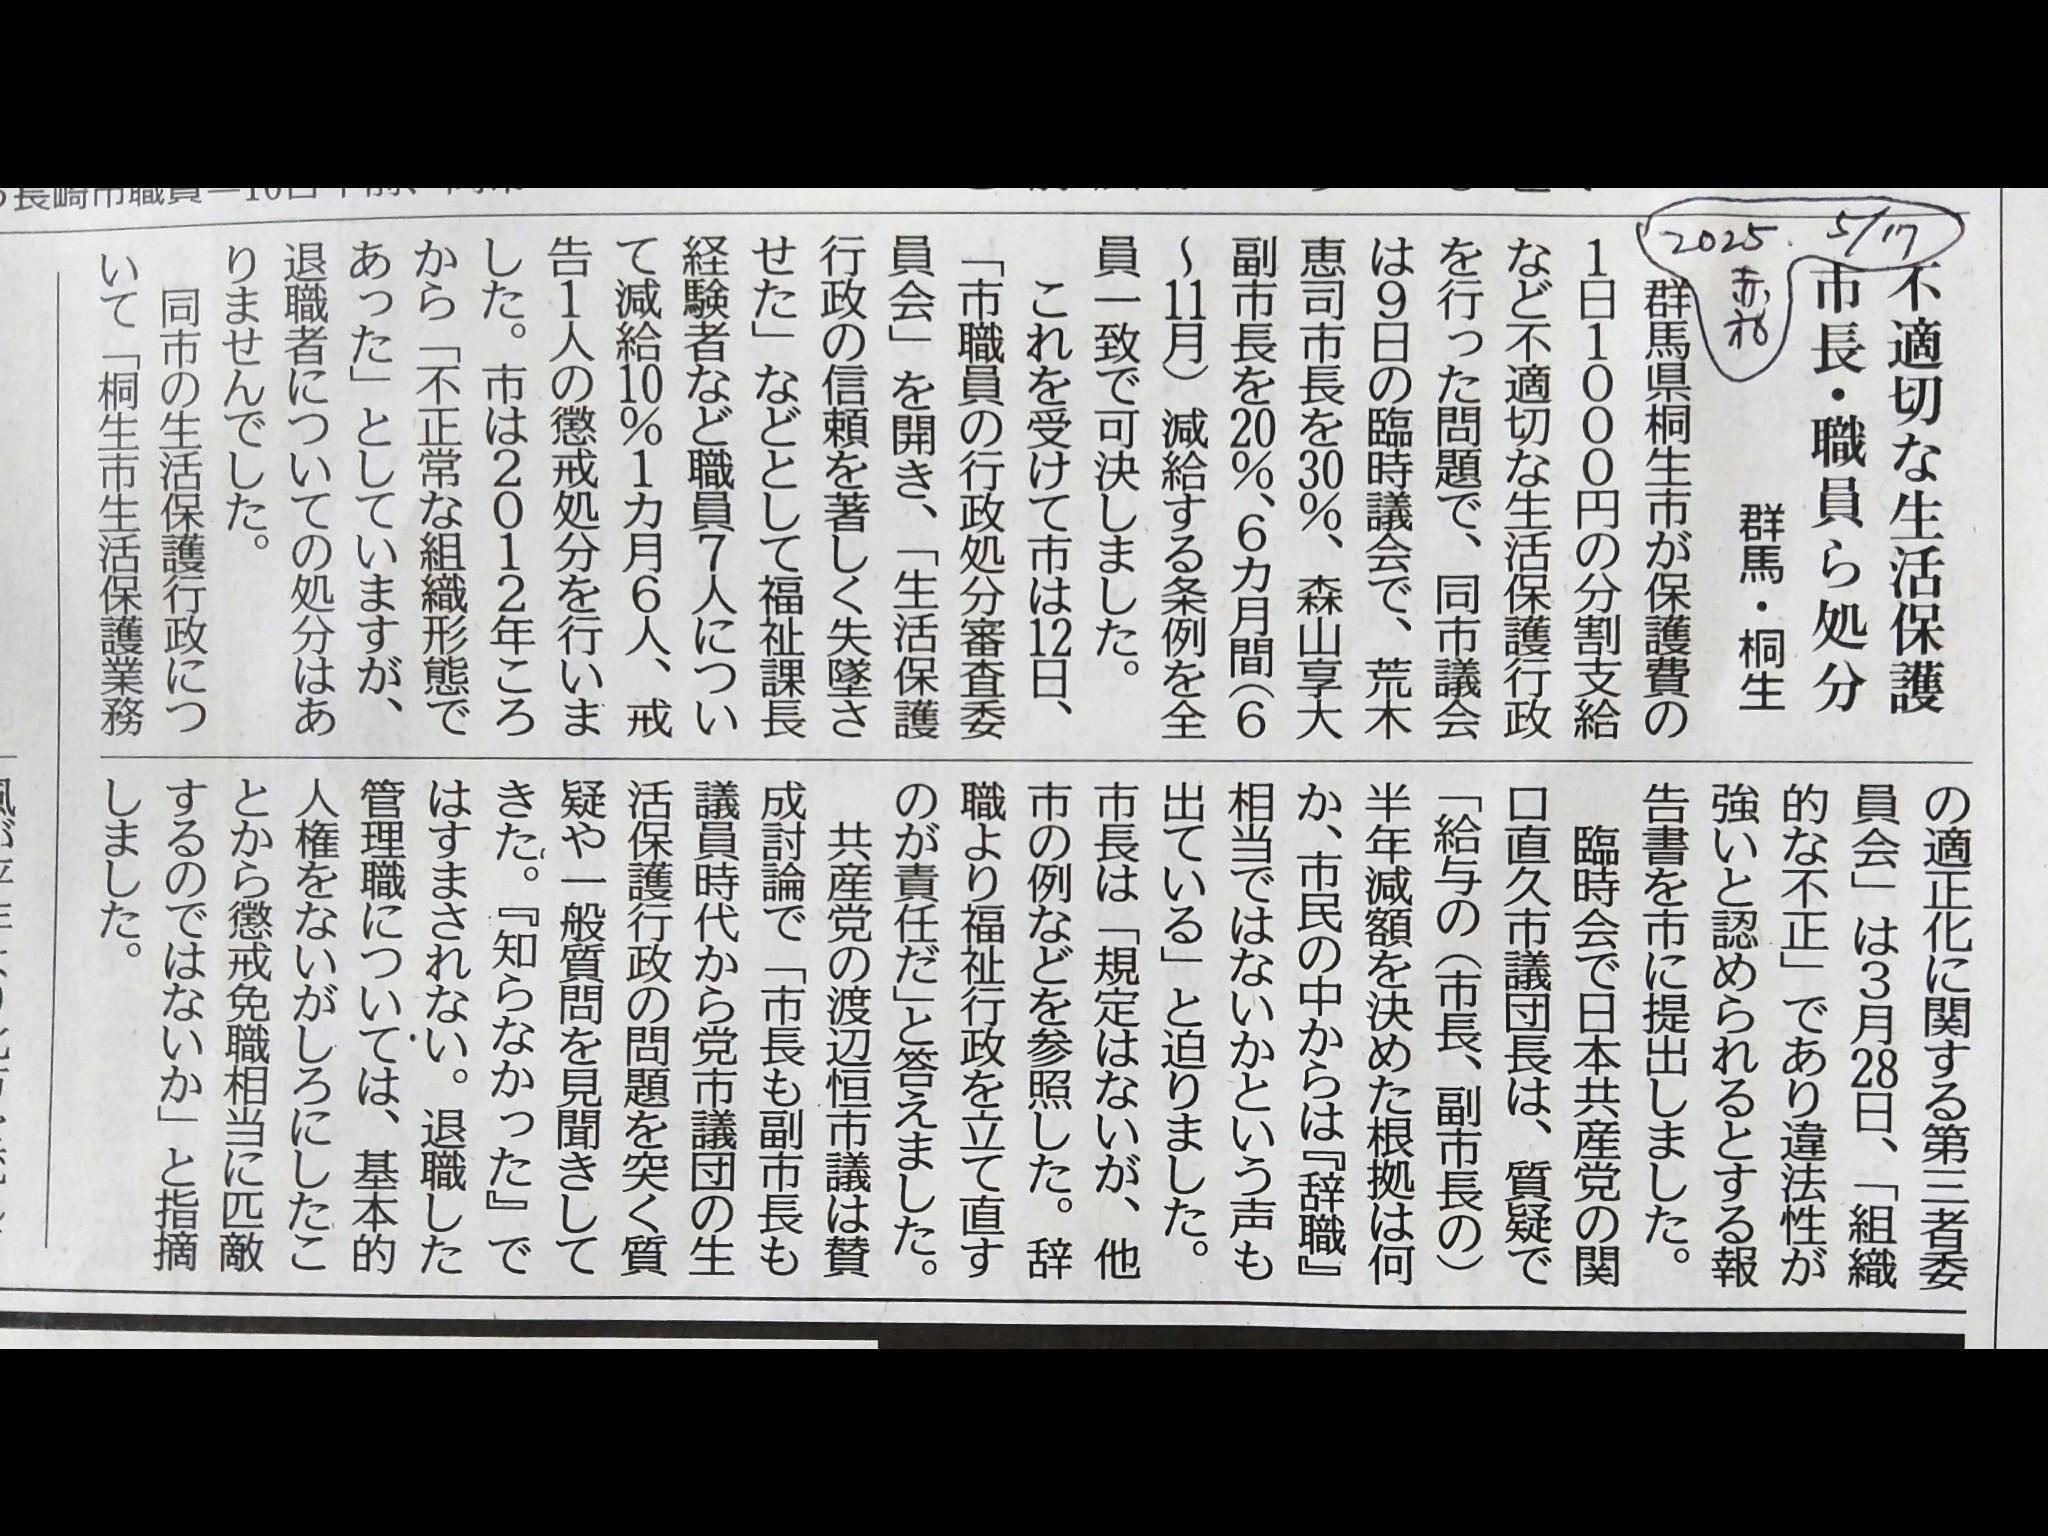 2025. 5/17
赤旗
不適切な生活保護
市長・職員ら処分
群馬・桐生
群馬県桐生市が保護費の
1日1000円の分割支給
など不適切な生活保護行政
を行った問題で、同市議会
は9日の臨時議会で、荒木
恵司市長を30%、森山享大
副市長を20%、6カ月間(6
〜11月)減給する条例を全
員一致で可決しました。
これを受けて市は12日、
「市職員の行政処分審査委
員会」を開き、「生活保護
行政の信頼を著しく失墜さ
せた」などとして福祉課長
経験者など職員7人につい
て減給10%1カ月6人、戒
告1人の懲戒処分を行いま
した。市は2012年ころ
から「不正常な組織形態で
あった」としていますが、
退職者についての処分はあ
りませんでした。
同市の生活保護行政につ
いて「桐生市生活保護業務
の適正化に関する第三者委
員会」は3月28日、「組織
的な不正」であり違法性が
強いと認められるとする報
告書を市に提出しました。
臨時会で日本共産党の関
口直久市議団長は、質疑で
「給与の(市長、副市長の)
半年減額を決めた根拠は何
か、市民の中からは『辞職』
相当ではないかという声も
出ている」と迫りました。
市長は「規定はないが、他
市の例などを参照した。辞
職より福祉行政を立て直す
のが責任だ」と答えました。
共産党の渡辺恒市議は賛
成討論で「市長も副市長も
議員時代から党市議団の生
活保護行政の問題を突く質
疑や一般質問を見聞きして
きた。『知らなかった』で
はすまされない。退職した
管理職については、基本的
人権をないがしろにしたこ
とから懲戒免職相当に匹敵
するのではないか」と指摘
しました。